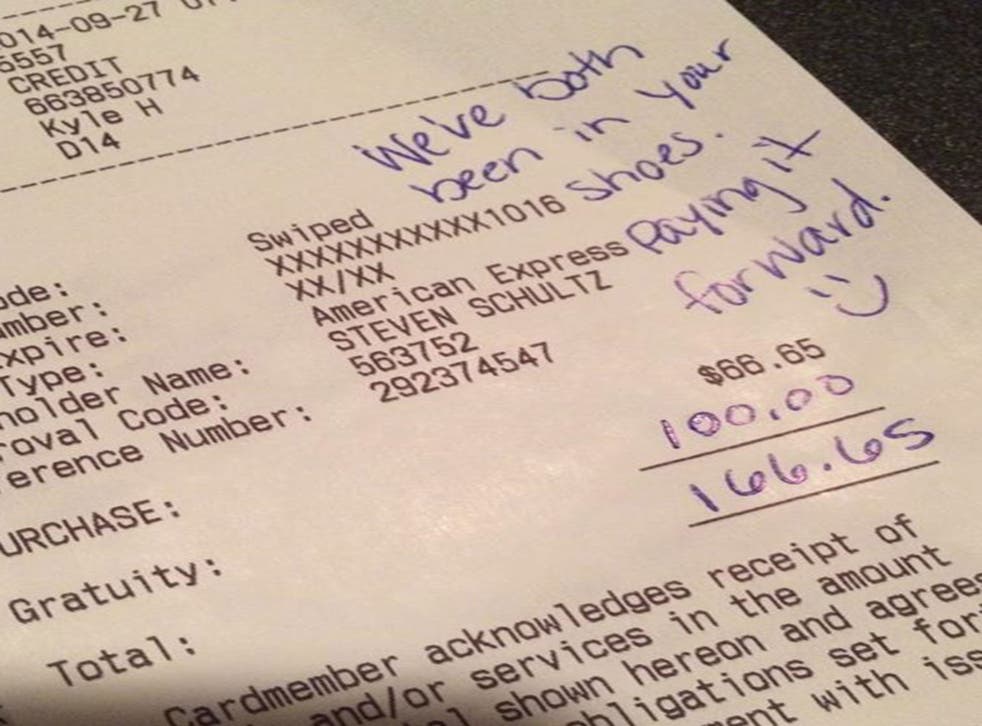 014-09-27
6557
CREDIT
663850774
Kyle H
D14
We've both
been in your
shoes.
Paying it
forward.
Swiped
XXXXXXXXXXX1016
XX/XX
American Express
STEVEN SCHULTZ
563752
292374547
ode:
umber:
xpire:
Type:
holder Name:
roval Code:
erence Number:
URCHASE: $66.65
Gratuity: 100.00
Total: 166.65
Cardmember acknowledges receipt of
and/or services in the amount
shown hereon and agrees
bligations set for
ment with iss